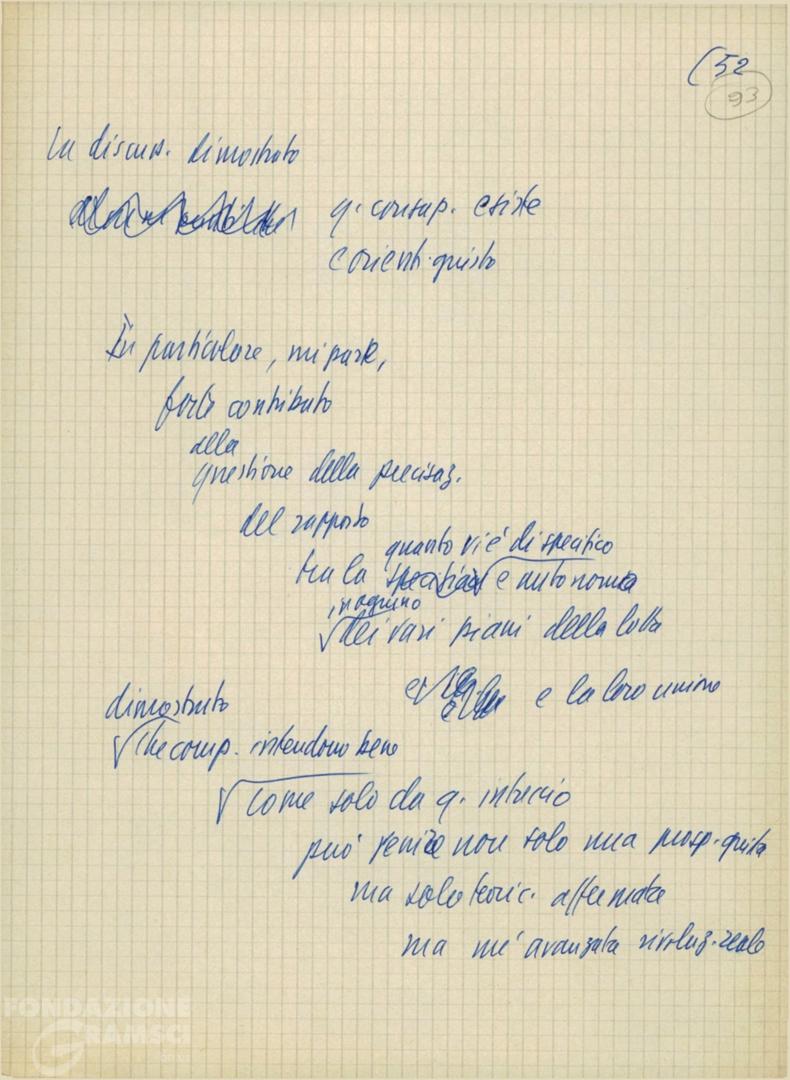 (52
93
La discus. dimostrato
q. consap. esiste
e orient. giusto
In particolare, mi pare,
forte contributo
alla
questione della precisaz.
del rapporto
quanto vi è di specifico
tra la e autonomo
in ognuno
dei vari piani della lotta
e la loro unione
dimostrato
che comp. intendono bene
come solo da q. intreccio
può venire non solo una prosp. giusta
ma solo teoric. affermata
ma un' avanzata rivoluz. reale
FONDAZIONE
GRAMSCI